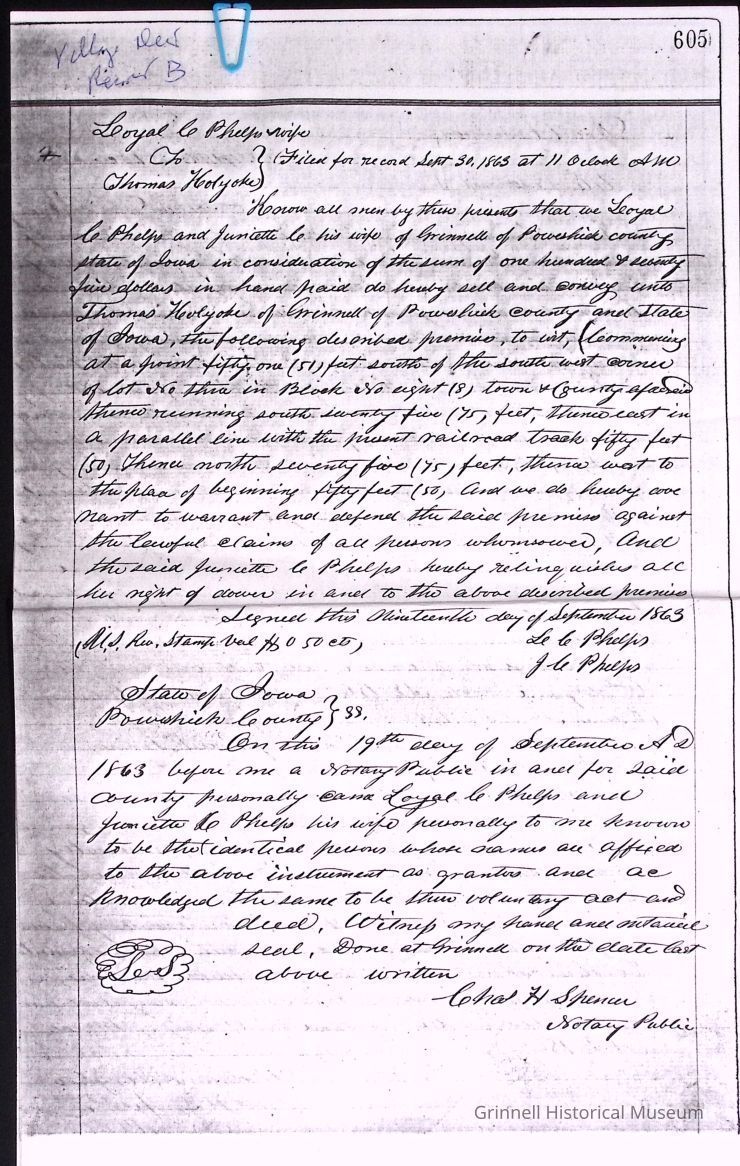 605
Village Deed
Record B
Loyal C Phelps & wife
To } (Filed for record Sept 30, 1863 at 11 Oclock AM
Thomas Holyoke)
Know all men by these presents that we Loyal
C Phelps and Juniette C his wife of Grinnell of Poweshiek county
state of Iowa in consideration of the sum of one hundred & seventy
five dollars in hand paid do hereby sell and convey unto
Thomas Holyoke of Grinnell of Poweshiek county and State
of Iowa, the following described premises, to wit, (Commencing
at a point fifty one (51) feet south of the south west corner
of lot No three in Block No eight (8) town & County aforesaid
thence running south seventy five (75) feet, thence east in
a parallel line with the present railroad track fifty feet
(50) Thence north seventy five (75) feet, thence west to
the place of beginning fifty feet (50) And we do hereby cove
nant to warrant and defend the said premises against
the lawful claims of all persons whomsoever, And
the said Juniette C Phelps hereby relinquishes all
her right of dower in and to the above described premises
Signed this Nineteenth day of September 1863
(U.S. Rev. Stamp Val $0 50 cts) L C Phelps
J C Phelps
State of Iowa
Poweshiek County } SS.
On this 19th day of September A D
1863 before me a Notary Public in and for said
county personally came Loyal C Phelps and
Juniette C Phelps his wife personally to me known
to be the identical persons whose names are affixed
to the above instrument as grantors and ac
knowledged the same to be their voluntary act and
deed. Witness my hand and notarial
seal. Done at Grinnell on the date last
above written
L S
Chas H Spencer
Notary Public
Grinnell Historical Museum